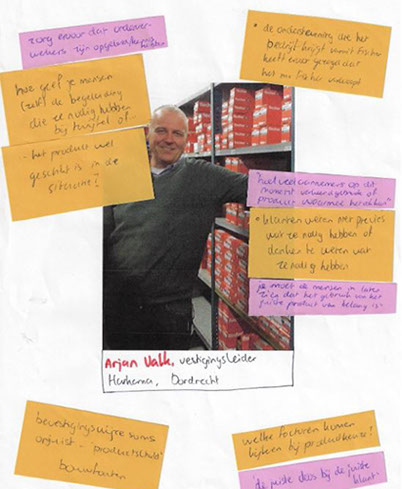 zorg ervoor dat
werkers zijn
• de ondersteuning die het
bedrijf krijgt vanuit Fischer
heeft ervoor gezorgd dat
het nu Fischer verkoopt
hoe geef je mensen
(zelf) de begeleiding
die ze nodig hebben
bij twijfel of...
- het product wel
geschikt is in de
situatie?
"heel veel aannemers op dit
moment
product waarmee
• klanten weten niet precies
wat ze nodig hebben of
denken te weten wat
ze nodig hebben
je moet de mensen in laten
zien dat het gebruik van het
juiste product van belang is
Arjan Valk, vestigingsleider
Dordrecht
bevestigingswijze soms
onjuist -
bouwfouten
welke factoren komen
kijken bij productkeuze?
'de juiste doos bij de juiste
klant'